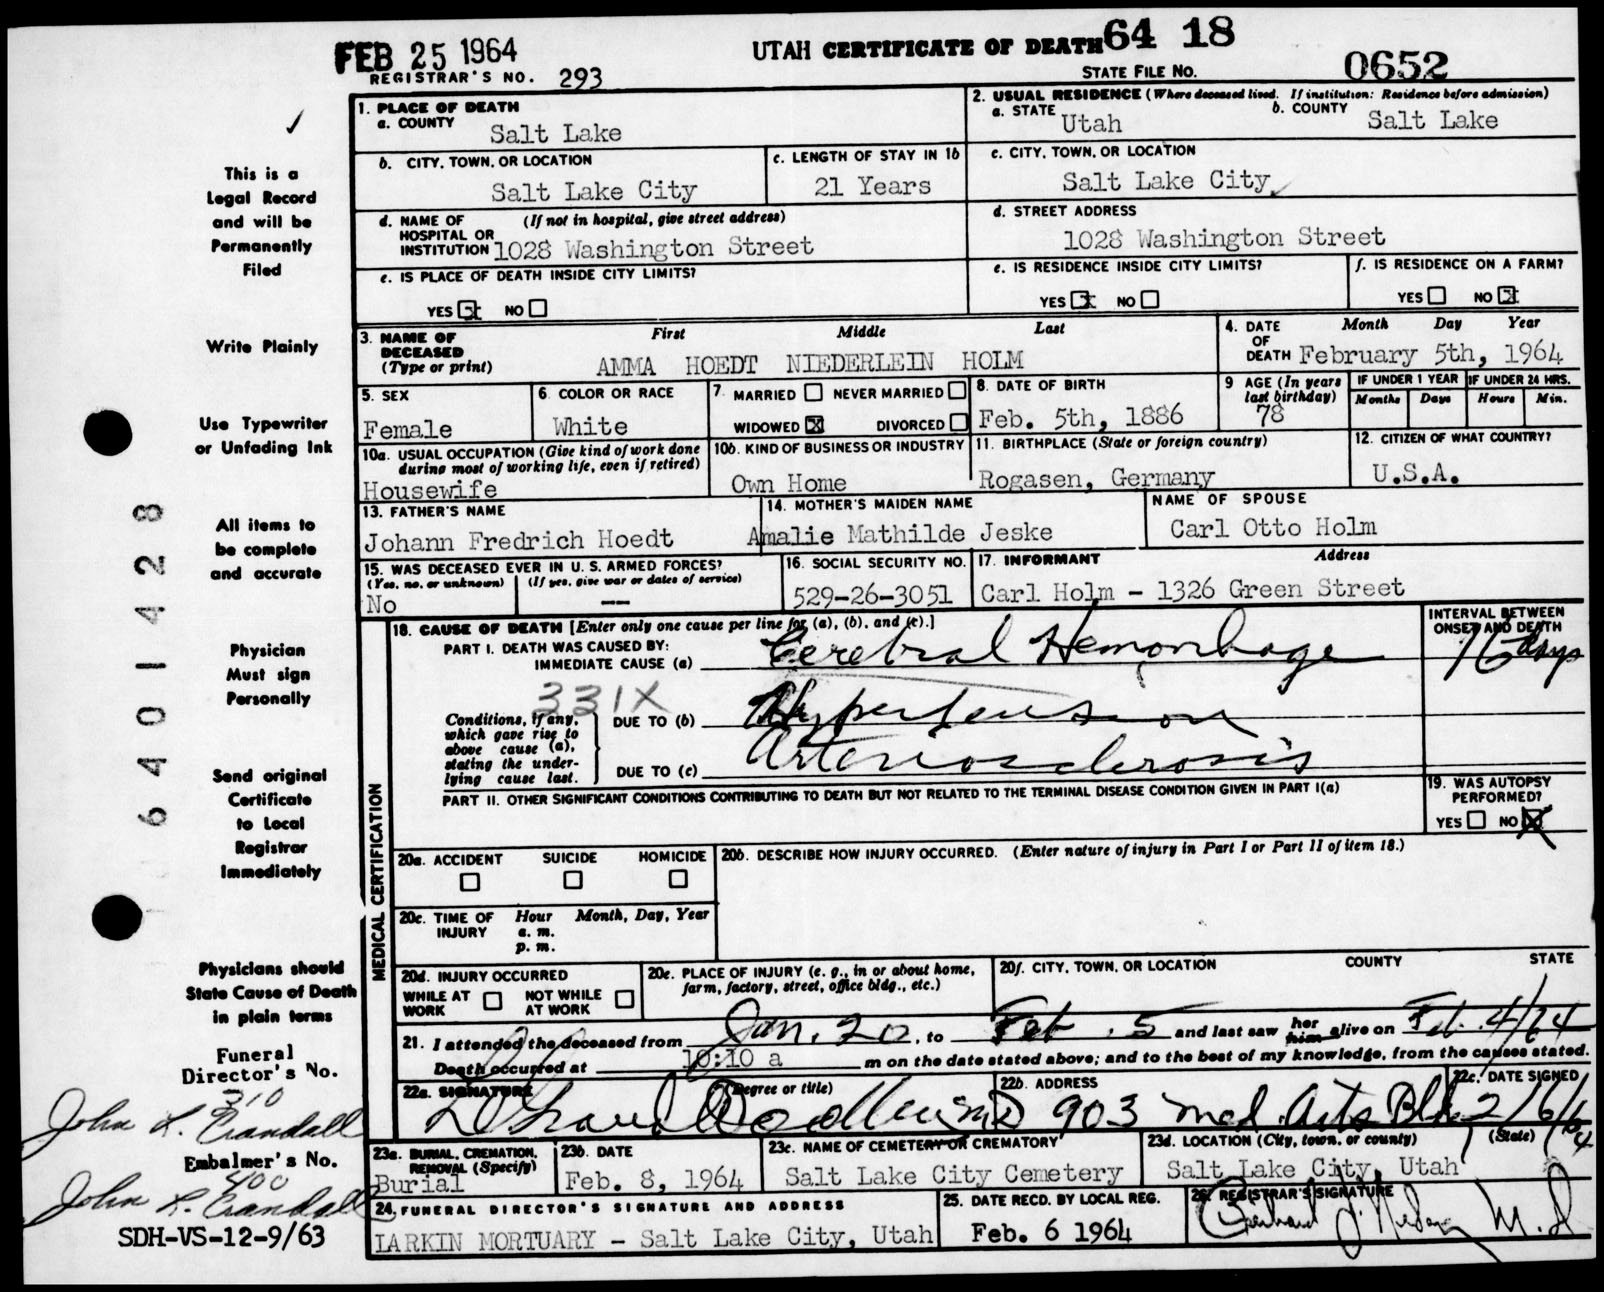 FEB 25 1964
UTAH CERTIFICATE OF DEATH 64 18
REGISTRAR'S NO. 293
STATE FILE NO. 0652
This is a
Legal Record
and will be
Permanently
Filed
Write Plainly
Use Typewriter
or Unfading Ink
All items to
be complete
and accurate
Physician
Must sign
Personally
Send original
Certificate
to Local
Registrar
Immediately
Physicians should
State Cause of Death
in plain terms
Funeral
Director's No.
310
John L. Crandall
Embalmer's No.
400
John L. Crandall
SDH-VS-12-9/63
6401428
1. PLACE OF DEATH
a. COUNTY
Salt Lake
2. USUAL RESIDENCE (Where deceased lived. If institution: Residence before admission)
a. STATE Utah
b. COUNTY Salt Lake
b. CITY, TOWN, OR LOCATION
Salt Lake City
c. LENGTH OF STAY IN 1b
21 Years
c. CITY, TOWN, OR LOCATION
Salt Lake City
d. NAME OF HOSPITAL OR INSTITUTION (If not in hospital, give street address)
1028 Washington Street
d. STREET ADDRESS
1028 Washington Street
e. IS PLACE OF DEATH INSIDE CITY LIMITS?
YES x NO
e. IS RESIDENCE INSIDE CITY LIMITS?
YES x NO
f. IS RESIDENCE ON A FARM?
YES NO x
3. NAME OF DECEASED (Type or print)
First Middle Last
AMMA HOEDT NIEDERLEIN HOLM
4. DATE OF DEATH
Month Day Year
February 5th, 1964
5. SEX
Female
6. COLOR OR RACE
White
7. MARRIED NEVER MARRIED
WIDOWED x DIVORCED
8. DATE OF BIRTH
Feb. 5th, 1886
9 AGE (In years last birthday)
78
IF UNDER 1 YEAR
Months Days
IF UNDER 24 HRS.
Hours Min.
10a. USUAL OCCUPATION (Give kind of work done during most of working life, even if retired)
Housewife
10b. KIND OF BUSINESS OR INDUSTRY
Own Home
11. BIRTHPLACE (State or foreign country)
Rogasen, Germany
12. CITIZEN OF WHAT COUNTRY?
U.S.A.
13. FATHER'S NAME
Johann Fredrich Hoedt
14. MOTHER'S MAIDEN NAME
Amalie Mathilde Jeske
NAME OF SPOUSE
Carl Otto Holm
15. WAS DECEASED EVER IN U. S. ARMED FORCES?
(Yes, no, or unknown) (If yes, give war or dates of service)
No --
16. SOCIAL SECURITY NO.
529-26-3051
17. INFORMANT Address
Carl Holm - 1326 Green Street
MEDICAL CERTIFICATION
18. CAUSE OF DEATH [Enter only one cause per line for (a), (b), and (c).]
INTERVAL BETWEEN ONSET AND DEATH
PART I. DEATH WAS CAUSED BY:
IMMEDIATE CAUSE (a) Cerebral Hemorrhage 16 days
331X
Conditions, if any, which gave rise to above cause (a), stating the underlying cause last.
DUE TO (b) Hypertension
DUE TO (c) Arteriosclerosis
PART II. OTHER SIGNIFICANT CONDITIONS CONTRIBUTING TO DEATH BUT NOT RELATED TO THE TERMINAL DISEASE CONDITION GIVEN IN PART I(a)
19. WAS AUTOPSY PERFORMED?
YES NO X
20a. ACCIDENT SUICIDE HOMICIDE
20b. DESCRIBE HOW INJURY OCCURRED. (Enter nature of injury in Part I or Part II of item 18.)
20c. TIME OF INJURY Hour Month, Day, Year
a. m.
p. m.
20d. INJURY OCCURRED
WHILE AT WORK NOT WHILE AT WORK
20e. PLACE OF INJURY (e. g., in or about home, farm, factory, street, office bldg., etc.)
20f. CITY, TOWN, OR LOCATION COUNTY STATE
21. I attended the deceased from Jan. 20, to Feb. 5 and last saw her him alive on Feb. 4/64
Death occurred at 10:10 a m on the date stated above; and to the best of my knowledge, from the causes stated.
22a. SIGNATURE (Degree or title)
22b. ADDRESS
903 Med. Arts Bldg
22c. DATE SIGNED
2/6/64
23a. BURIAL, CREMATION, REMOVAL (Specify)
Burial
23b. DATE
Feb. 8, 1964
23c. NAME OF CEMETERY OR CREMATORY
Salt Lake City Cemetery
23d. LOCATION (City, town, or county) (State)
Salt Lake City, Utah
24. FUNERAL DIRECTOR'S SIGNATURE AND ADDRESS
LARKIN MORTUARY - Salt Lake City, Utah
25. DATE RECD. BY LOCAL REG.
Feb. 6 1964
26. REGISTRAR'S SIGNATURE
M.D.